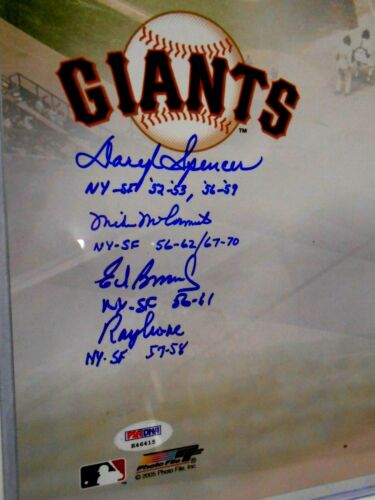 GIANTS
TM
Daryl Spencer
NY-SF '52-'53, '56-'59
Mike McCormick
NY-SF 56-62/67-70
Ed Bressoud
NY-SF 56-61
Ray Crone
NY-SF 57-58
PSA/DNA
Photo File
© 2005 Photo File, Inc.